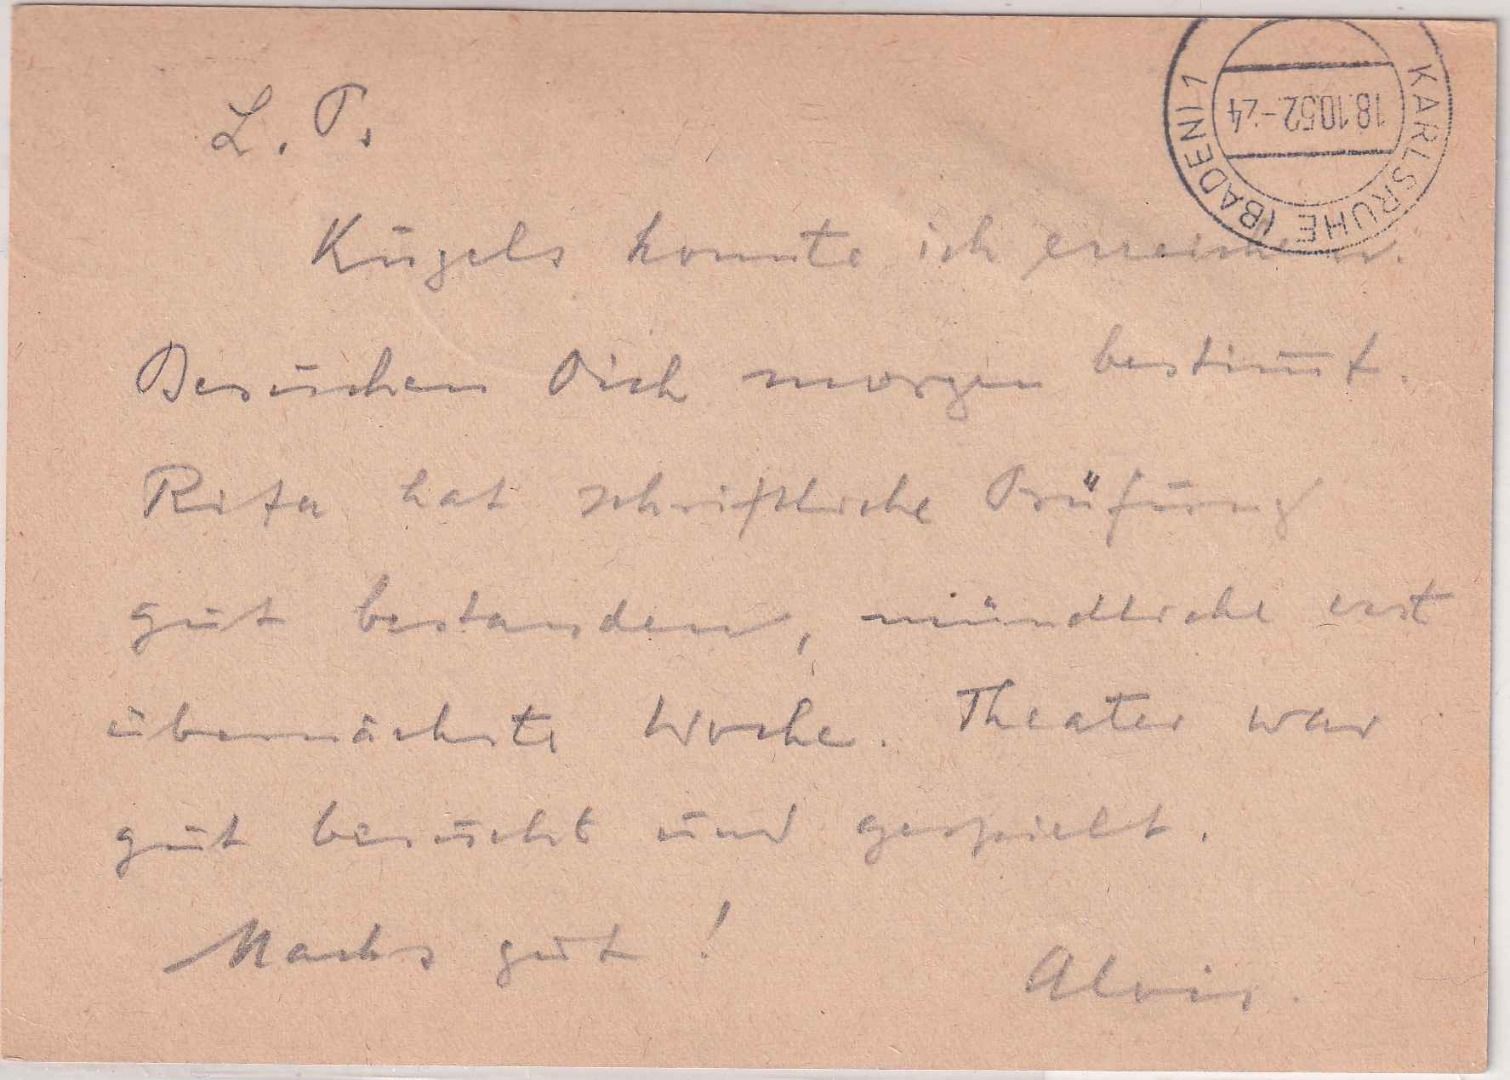 KARLSRUHE (BADEN) 1
18.10.52.-24
L. P.
Kugels konnte ich erreichen.
Besuchen Dich morgen bestimmt.
Rita hat schriftliche Prüfung
gut bestanden, mündliche erst
übernächste Woche. Theater war
gut besucht und gespielt.
Machs gut! Alois.